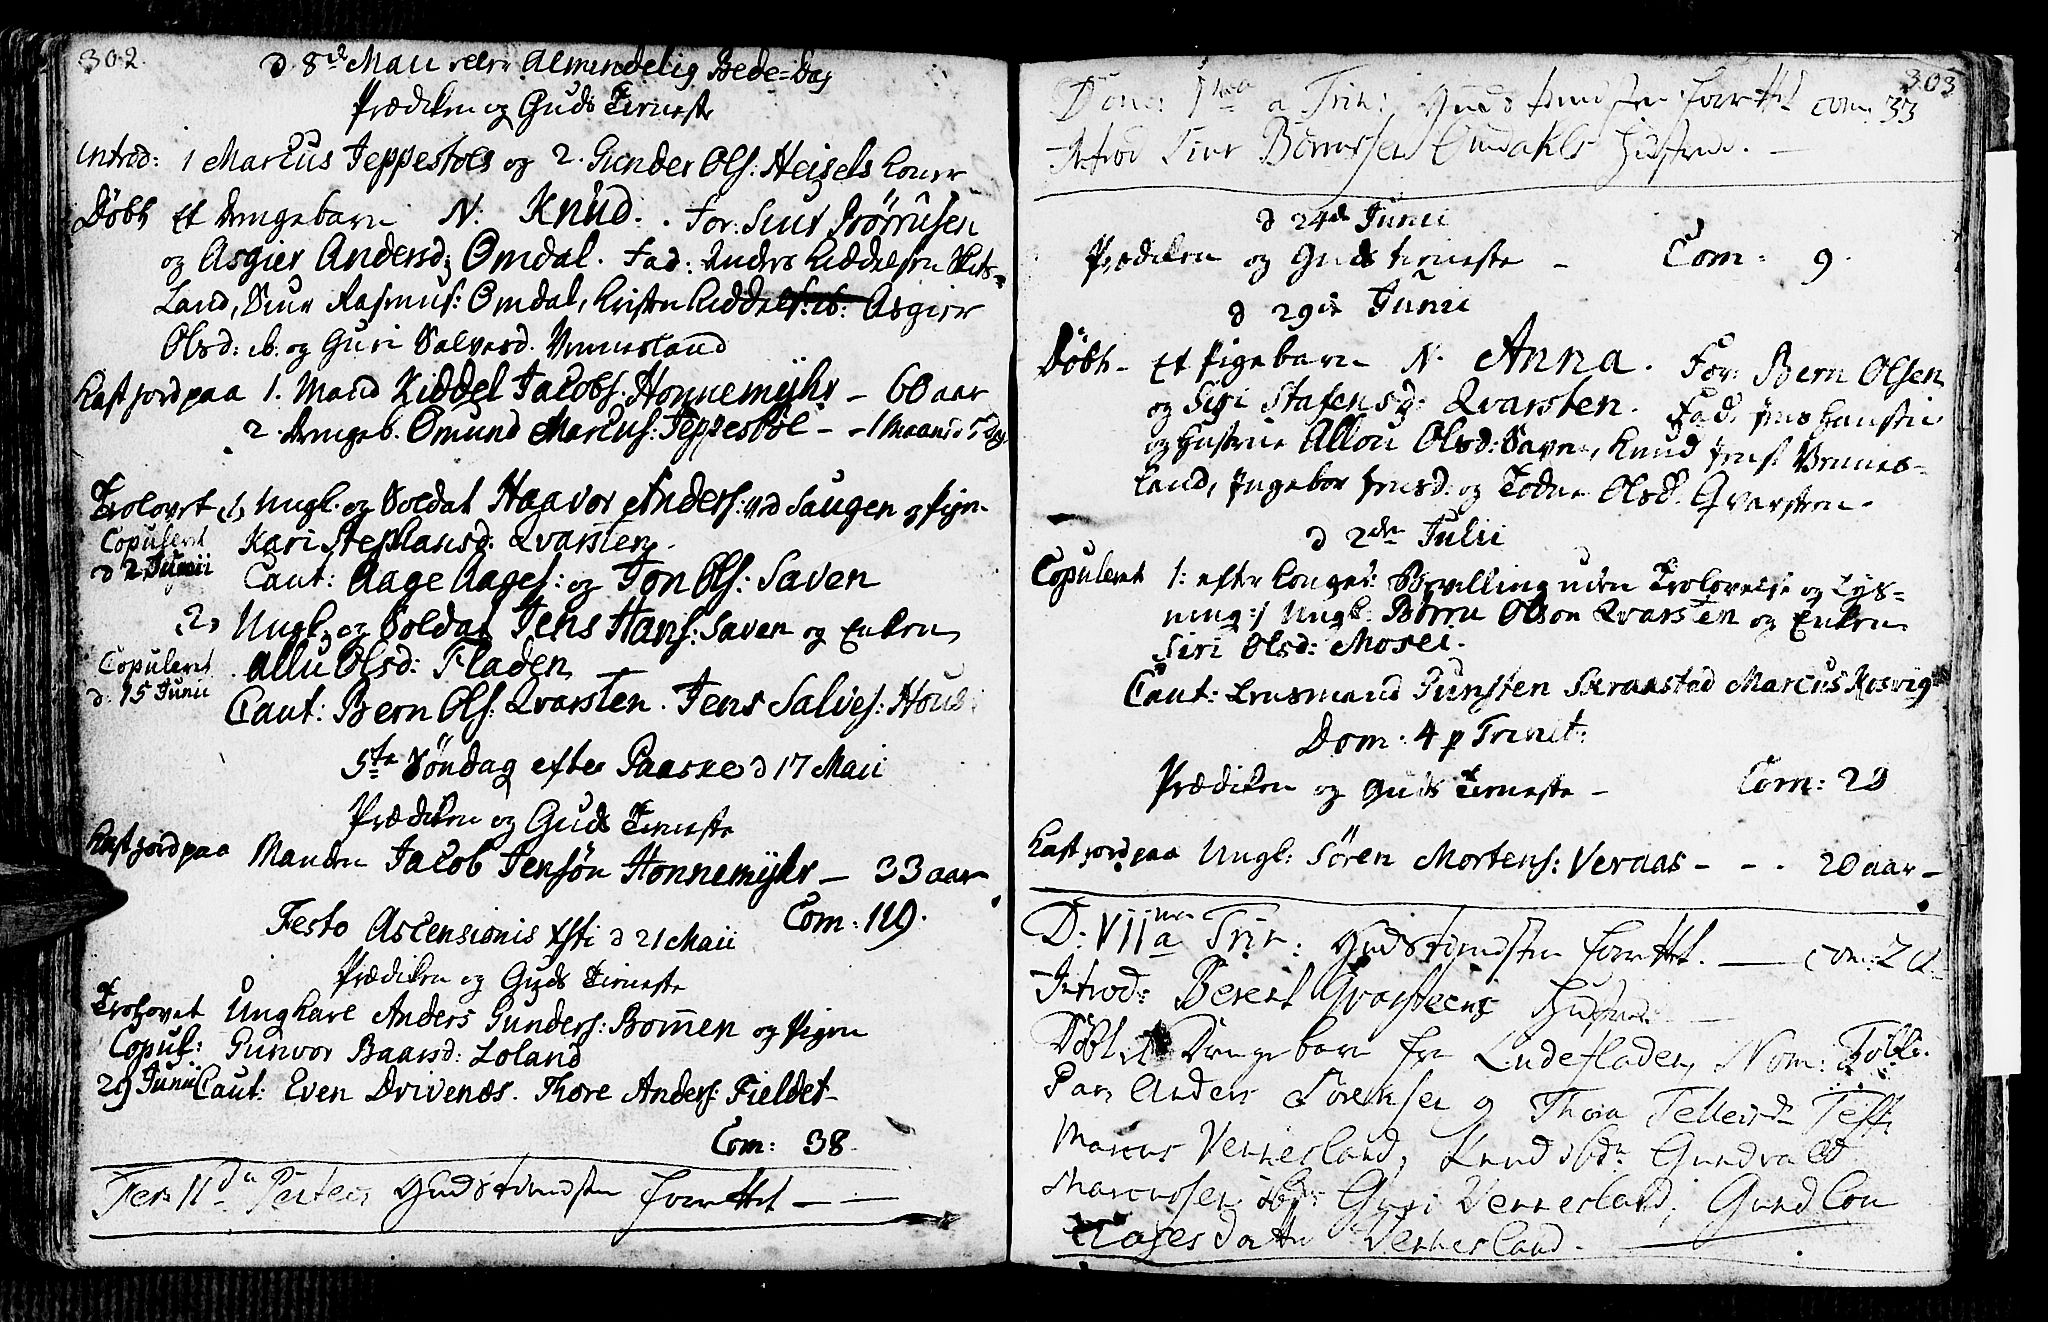 302.
d. 8de Maii eller Almindelig Bede-Dag
Prædiken og Guds Tieneste
introd: 1 Marcus Jeppestøls og 2. Gunder Ols: Heisels koner
Døbt Et drengebarn N. Knud. For: Siur Børrusen
og Asgier Andersd: Omdal. Fad: Anders Kiddelsen
Land, Siur Rasmus: Omdal, Kristen Kiddels: ib: Asgier
Olsd: ib: og Guri Salvesd. Vennesland
Kast jord paa 1. Mand Kiddel Jacobs: Honnemyhr – 60 aar
2. drengeb. Omund Marcus: Jeppestøl – – 1 Maaned 5 Dag
Trolovet 1, Ungk. og Soldat Haavor Anders: ved Saugen og Pign
Copuleret Kari Stephansd. Qvarsten.
d 2 Junii Caut: Aage Aages: og Jon Ols: Saven
2, Ungk. og Soldat Jens Hans: Saven og Enken
Copuleret Allu Olsd: Fladen
d. 15 Junii Caut: Bern Ols: Qvarsten. Jens Salves:
5te Søndag efter Paaske d 17 Maii
Prædiken og Guds Tieneste
Kast jord paa Manden Jacob Jensøn Honnemyhr – 33 aar
Com: 119.
Festo Ascensionis Xsti d 21 Maii
Prædiken og Guds Tieneste
Trolovet Ungkarl Anders Gunders: Bommen og Pigen
Copul: Gunvor Baarsd: Loland
29 Junii Caut: Even Drivenæs. Thore Anders: Fieldet
Com: 38.
Fer: IIda Pentec: Gudstienesten forrettet –
303
Dom: 1ma a Trin: Gudstienesten forrettet com: 33
Introd Siur Børrusen Omdals Hustrue. –
d 24de Junii
Prædiken og Guds tieneste – Com: 9.
d 29de Junii
Døbt – Et Pigebarn N. Anna. For: Bern Olsen
og Siri Stafensd: Qvarsten. Fad. Jens Hansen
og Hustrue Allou Olsd: Saven, Knud Jens: Vennes-
land, Ingebor Jensd: og Todne Olsd. Qvarsten.
d 2den Julii
Copuleret 1: efter Konges: Bevilling uden Trolovelse og Lys-
ning:/ Ungk: Børru Olson Qvarsten og Enken
Siri Olsd: Mosei.
Caut: Lensmand Gunsten Skraastad Marcus Rosvig
Dom. 4 p Trinit:
Prædiken og Guds Tieneste – Com: 20
Kast jord paa Ungk: Søren Mortens: Veraas – – – 20 aar –
D: VIIma a Trin: Gudstienesten forrettet. –
Introd: Berent Qvarsteens Hustrue –
Døbt et Drenge barn fra Ludefladen, Nom:
Par: Anders Sørensen og Thora Tellevsd: Test:
Marcus Vennesland, Knud ibdm Gundvald
Marcussen ibdm Guri Vennesland, Gundlou
Aagesdatter Vennesland.